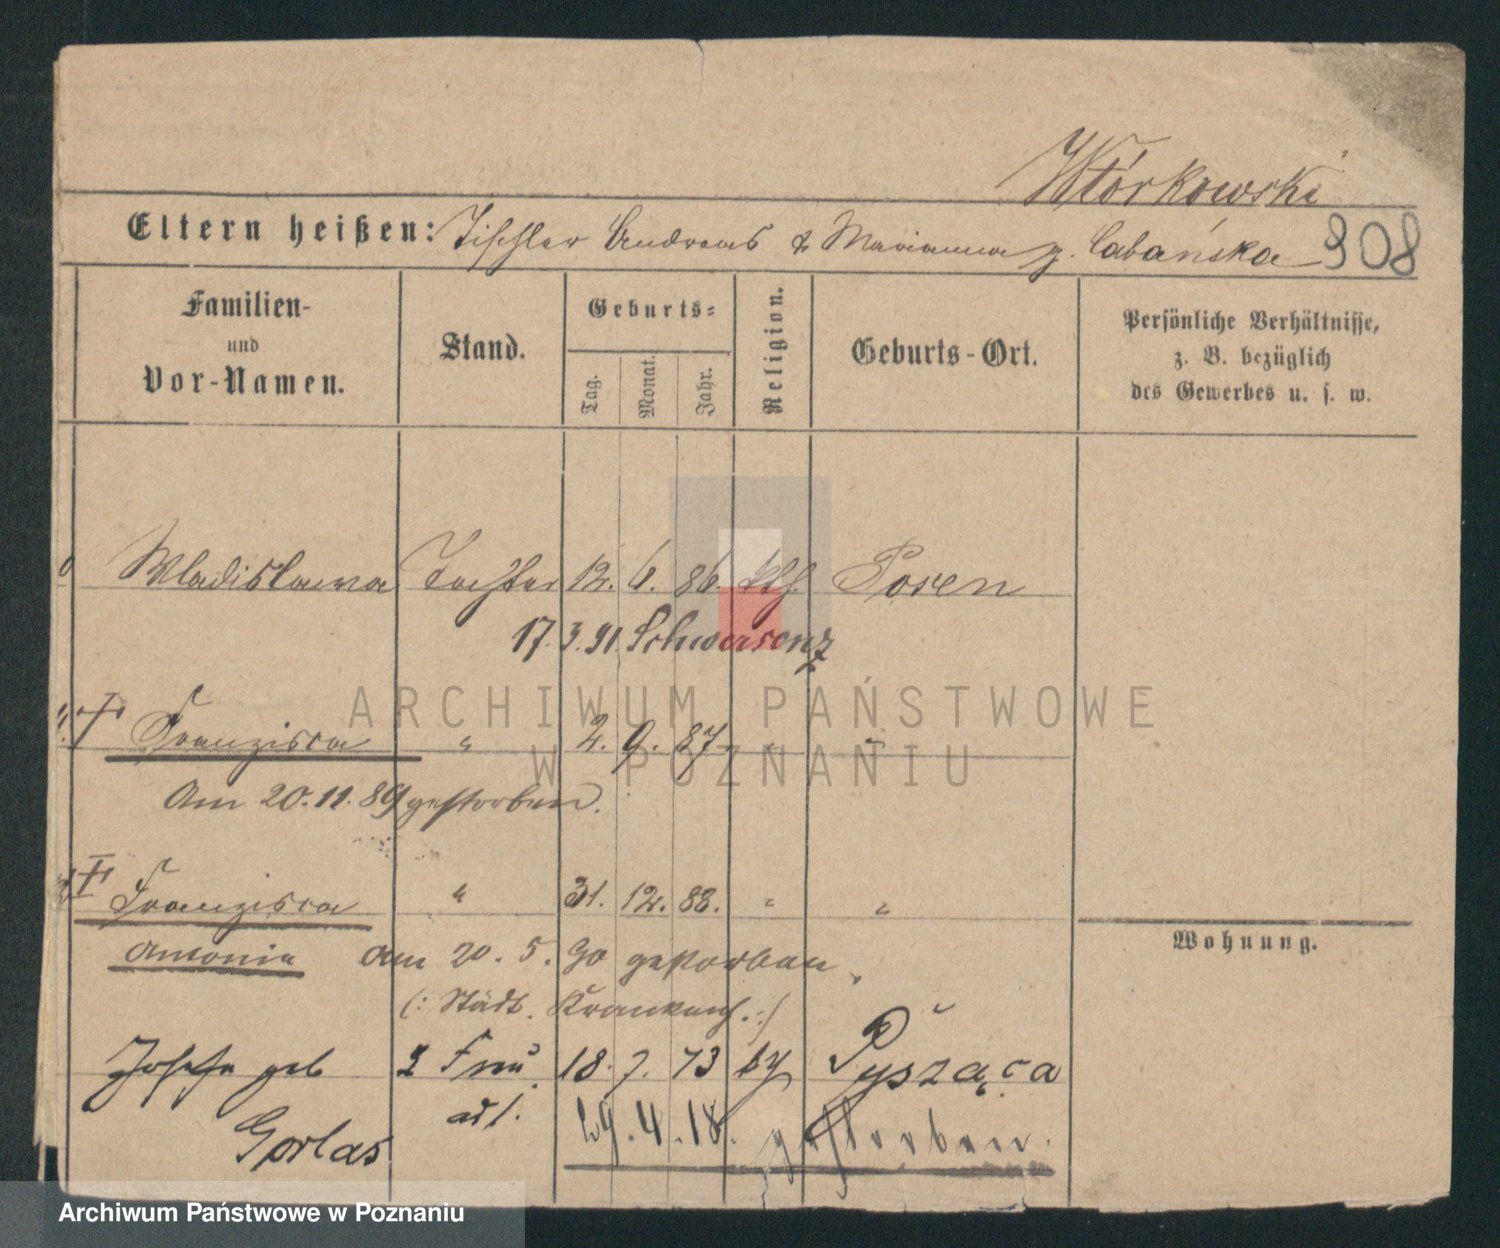 Wtórkowski
Eltern heißen: Tischler Andreas & Marianna g. Cabańska 308
Familien-
und
Vor-Namen.
Stand.
Geburts-
Tag.
Monat.
Jahr.
Religion.
Geburts-Ort.
Persönliche Verhältnisse,
z. B. bezüglich
des Gewerbes u. s. w.
Wladislawa Tochter 12. 6. 86. kth. Posen
17. 3. 91. Schwersenz
Franzisca " 2. 9. 87. " "
Am 20. 11. 89 gestorben.
Franzisca " 31. 12. 88. " "
Antonie Am 20. 5. 90 gestorben,
(: Städt. Krankenh. :)
Wohnung.
Josefa geb 2 Frau 18. 7. 73 kth Pysząca
ad 1.
Gorlas
29. 4. 18. gestorben.
ARCHIWUM PAŃSTWOWE
W POZNANIU
Archiwum Państwowe w Poznaniu